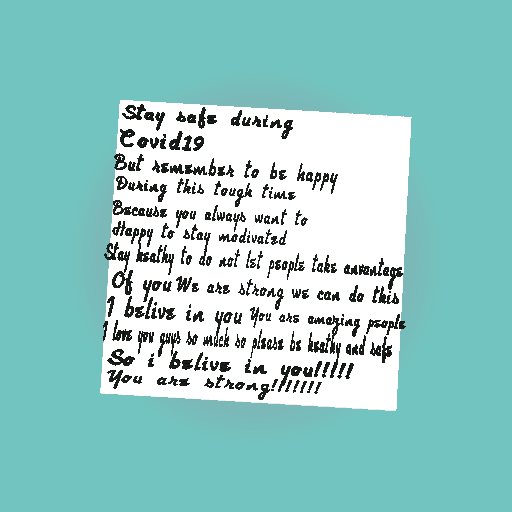 Stay safe during
Covid19
But remember to be happy
During this tough time
Because you always want to
Happy to stay modivated
Stay heathy to do not let people take anvantage
Of you We are strong we can do this
I belive in you You are amazing people
I love you guys so much so please be heathy and safe
So i belive in you!!!!!
You are strong!!!!!!!